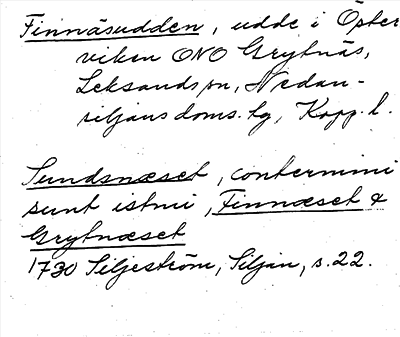 Finnäsudden, udde i Öster
viken ONO Grytnäs,
Leksands sn, Nedan-
siljans doms. tg, Kopp. l.
Sundsnæset, contermini
sunt istmi, Finnæset &
Grytnæset
1730 Siljeström, Siljan, s. 22.